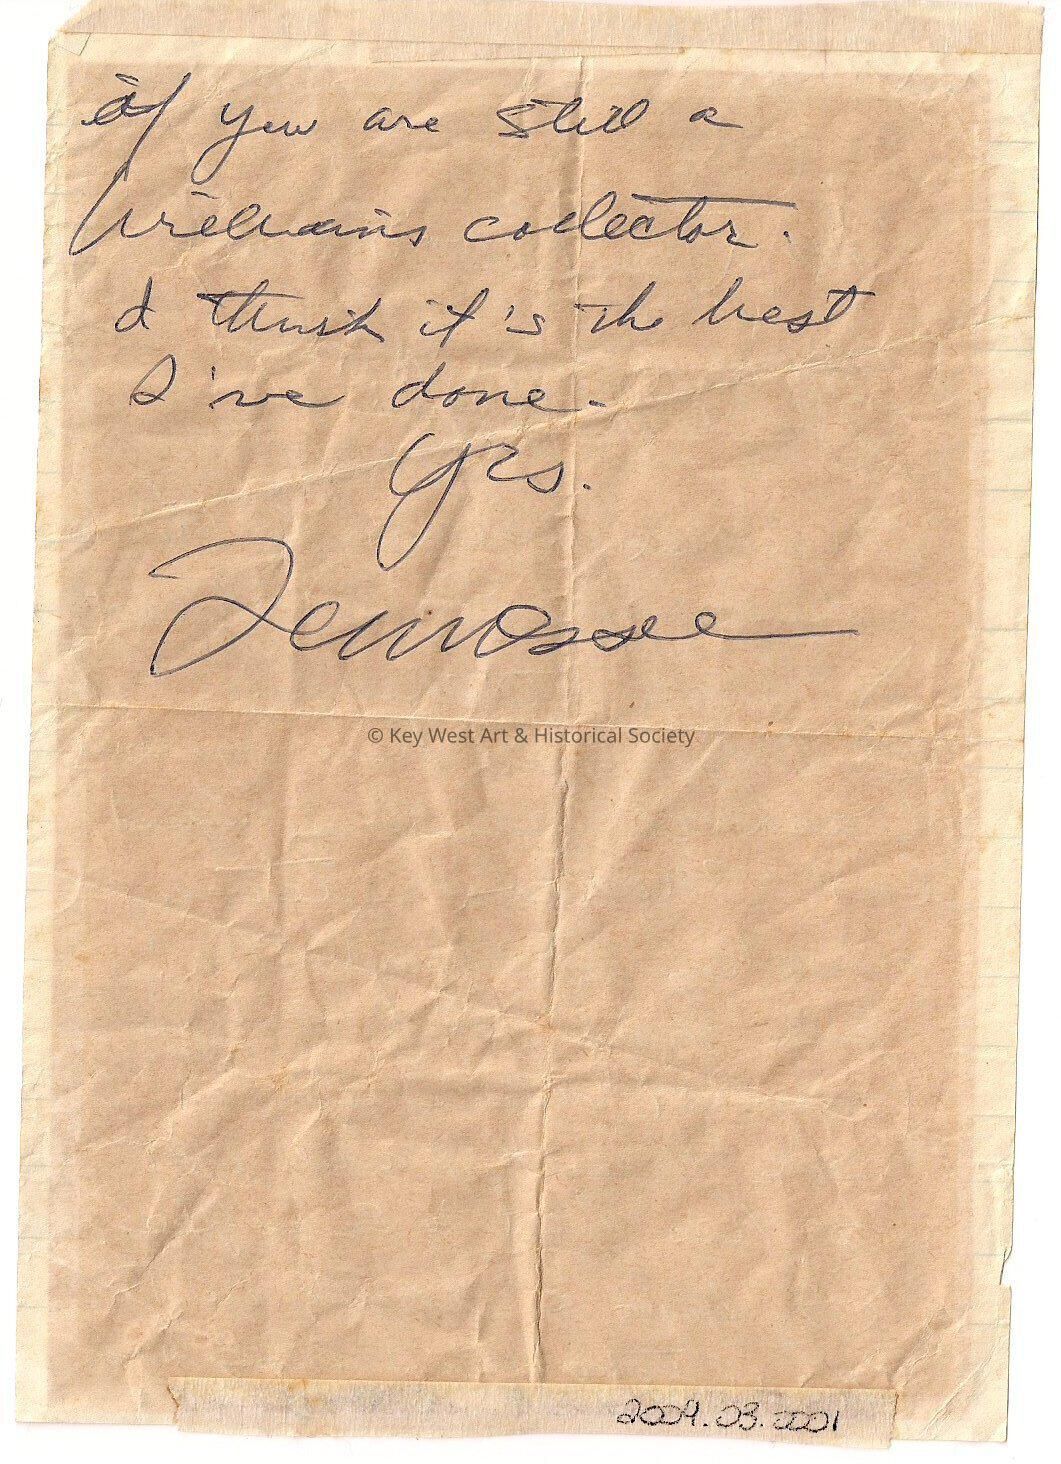 if you are still a
Williams collector.
I think it's the best
I've done.
Yrs.
Tennessee
© Key West Art & Historical Society
2009.03.0001